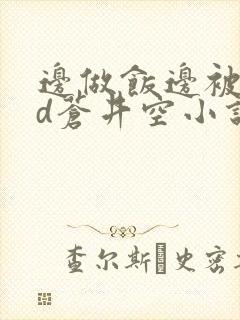 邊做飯邊被
d蒼井空小
查尔斯·史密